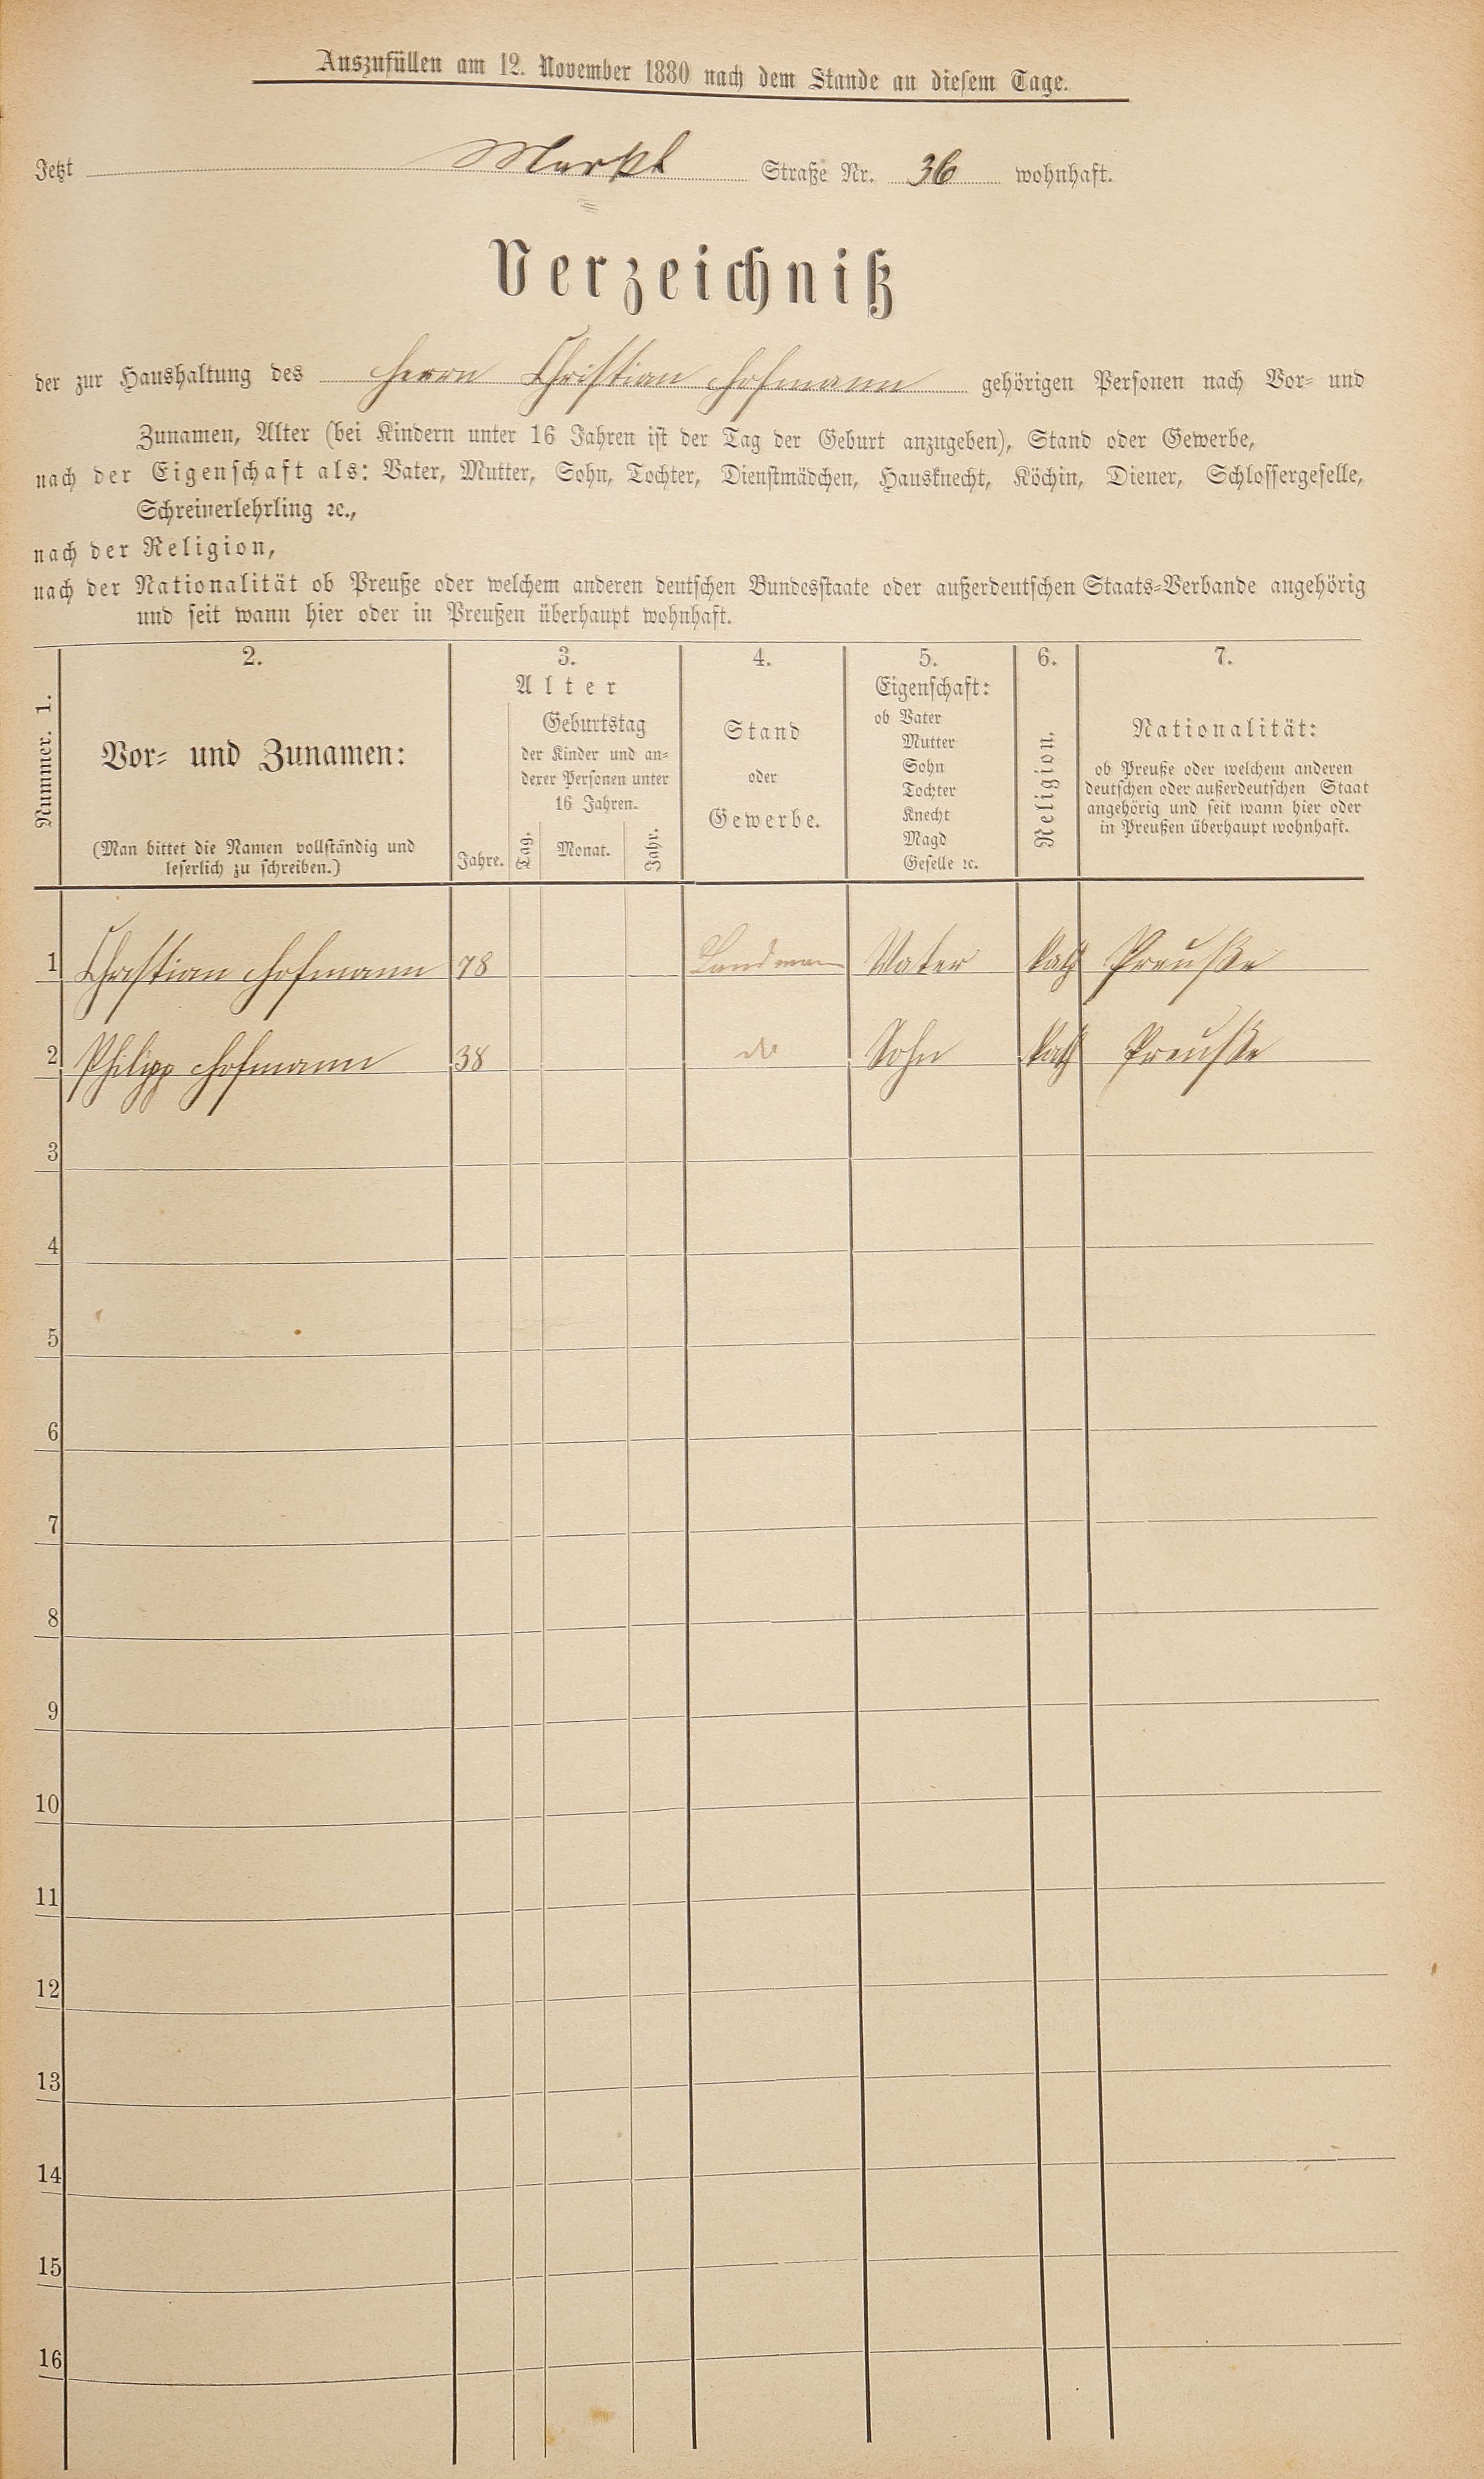 Auszufüllen am 12. November 1880 nach dem Stande an dieſem Tage.
Jetzt Markt Straße Nr. 36 wohnhaft.
Verzeichniß
der zur Haushaltung des Herrn Christian Hofmann gehörigen Perſonen nach Vor- und
Zunamen, Alter (bei Kindern unter 16 Jahren iſt der Tag der Geburt anzugeben), Stand oder Gewerbe,
nach der Eigenſchaft als: Vater, Mutter, Sohn, Tochter, Dienſtmädchen, Hausknecht, Köchin, Diener, Schloſſergeſelle,
Schreinerlehrling ꝛc.,
nach der Religion,
nach der Nationalität ob Preuße oder welchem anderen deutſchen Bundesſtaate oder außerdeutſchen Staats-Verbande angehörig
und ſeit wann hier oder in Preußen überhaupt wohnhaft.
Nummer. 1.
2.
Vor- und Zunamen:
(Man bittet die Namen vollſtändig und
leſerlich zu ſchreiben.)
3.
Alter
Jahre.
Geburtstag
der Kinder und an-
derer Perſonen unter
16 Jahren.
Tag. Monat. Jahr.
4.
Stand
oder
Gewerbe.
5.
Eigenſchaft:
ob Vater
Mutter
Sohn
Tochter
Knecht
Magd
Geſelle ꝛc.
6.
Religion.
7.
Nationalität:
ob Preuße oder welchem anderen
deutſchen oder außerdeutſchen Staat
angehörig und ſeit wann hier oder
in Preußen überhaupt wohnhaft.
1 Christian Hofmann 78 Landmann Vater Kath Preuße
2 Philipp Hofmann 38 do Sohn Kath Preuße
3
4
5
6
7
8
9
10
11
12
13
14
15
16